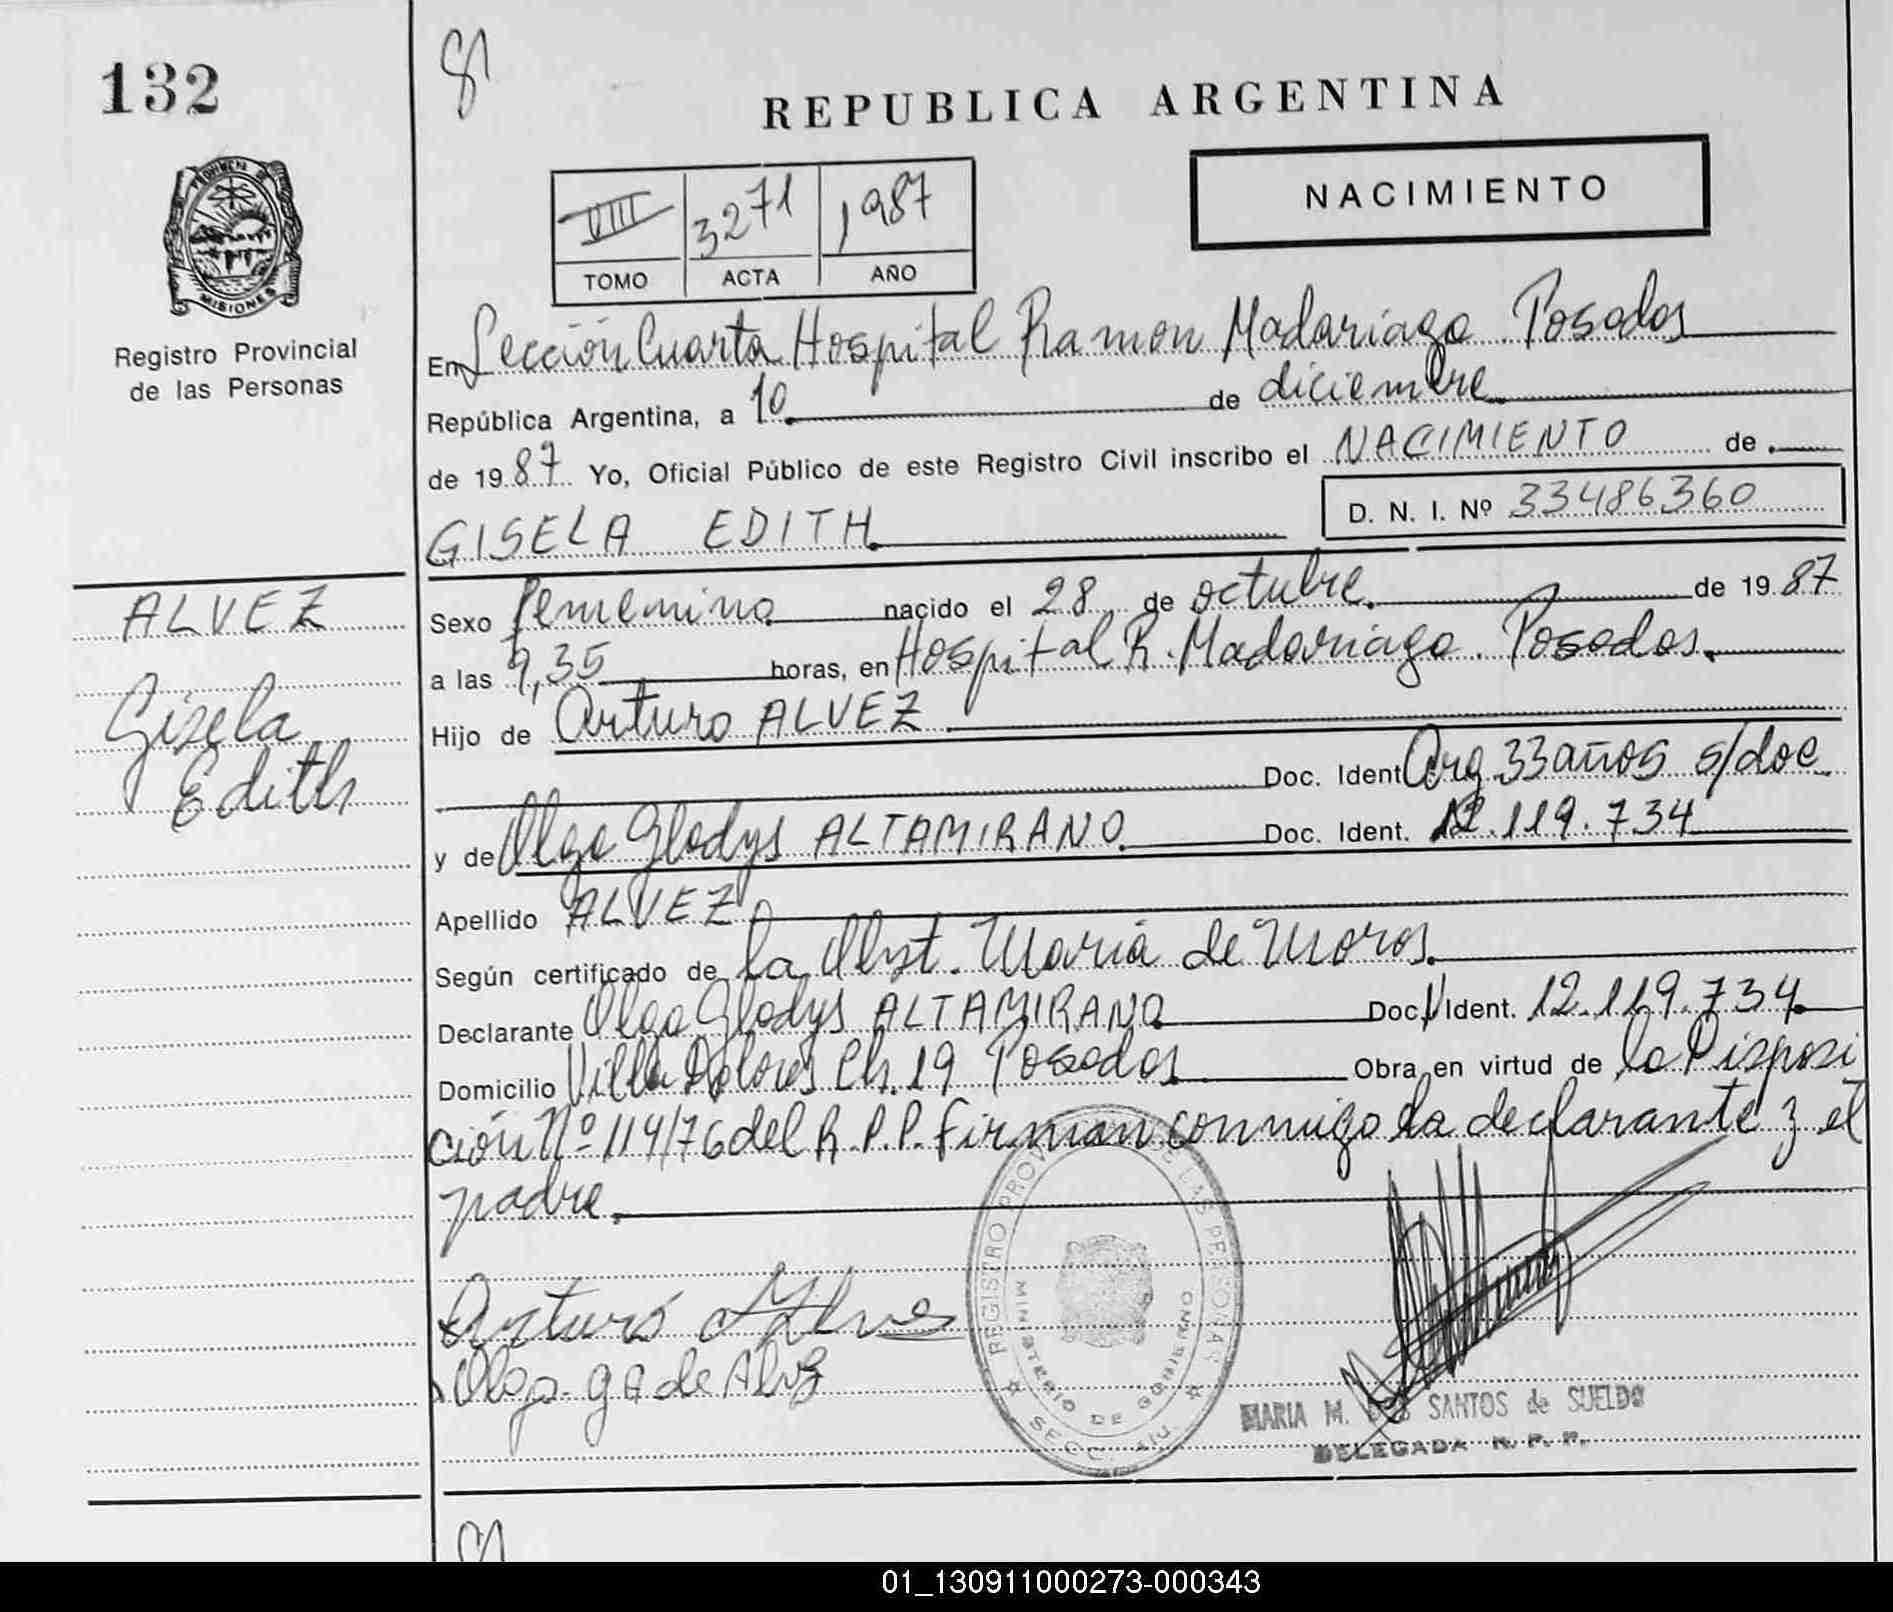 132
REPUBLICA ARGENTINA
NACIMIENTO
VIII 3271 1987
TOMO ACTA AÑO
PROVINCIA D
MISIONES
Registro Provincial
de las Personas
En Sección Cuarta Hospital Ramon Madariaga. Posadas
República Argentina, a 10 de diciembre
de 1987 Yo, Oficial Público de este Registro Civil inscribo el NACIMIENTO de
D. N. I. Nº 33486360
GISELA EDITH.
ALVEZ
Gisela
Edith
Sexo femenino nacido el 28 de octubre. de 1987
a las 9,35 horas, en Hospital R. Madariaga. Posadas.
Hijo de Arturo ALVEZ
Doc. Ident Arg 33 años s/doc
y de Olga Gladys ALTAMIRANO Doc. Ident. 12.119.734
Apellido ALVEZ
Según certificado de la Obst. Maria de Moros.
Declarante Olga Gladys ALTAMIRANO Doc. Ident. 12.119.734
Domicilio Villa Dolores Ch. 19 Posadas Obra en virtud de la Disposi
ción Nº 114/76 del R.P.P. Firman conmigo la declarante y el
padre.
Arturo Alves
Olga. g a de Alvez
REGISTRO PROV DE LAS PERSONAS
MINISTERIO DE GOBIERNO
SECC.
MARIA M. DOS SANTOS de SUELDO
DELEGADA R. P. P.
01_130911000273-000343